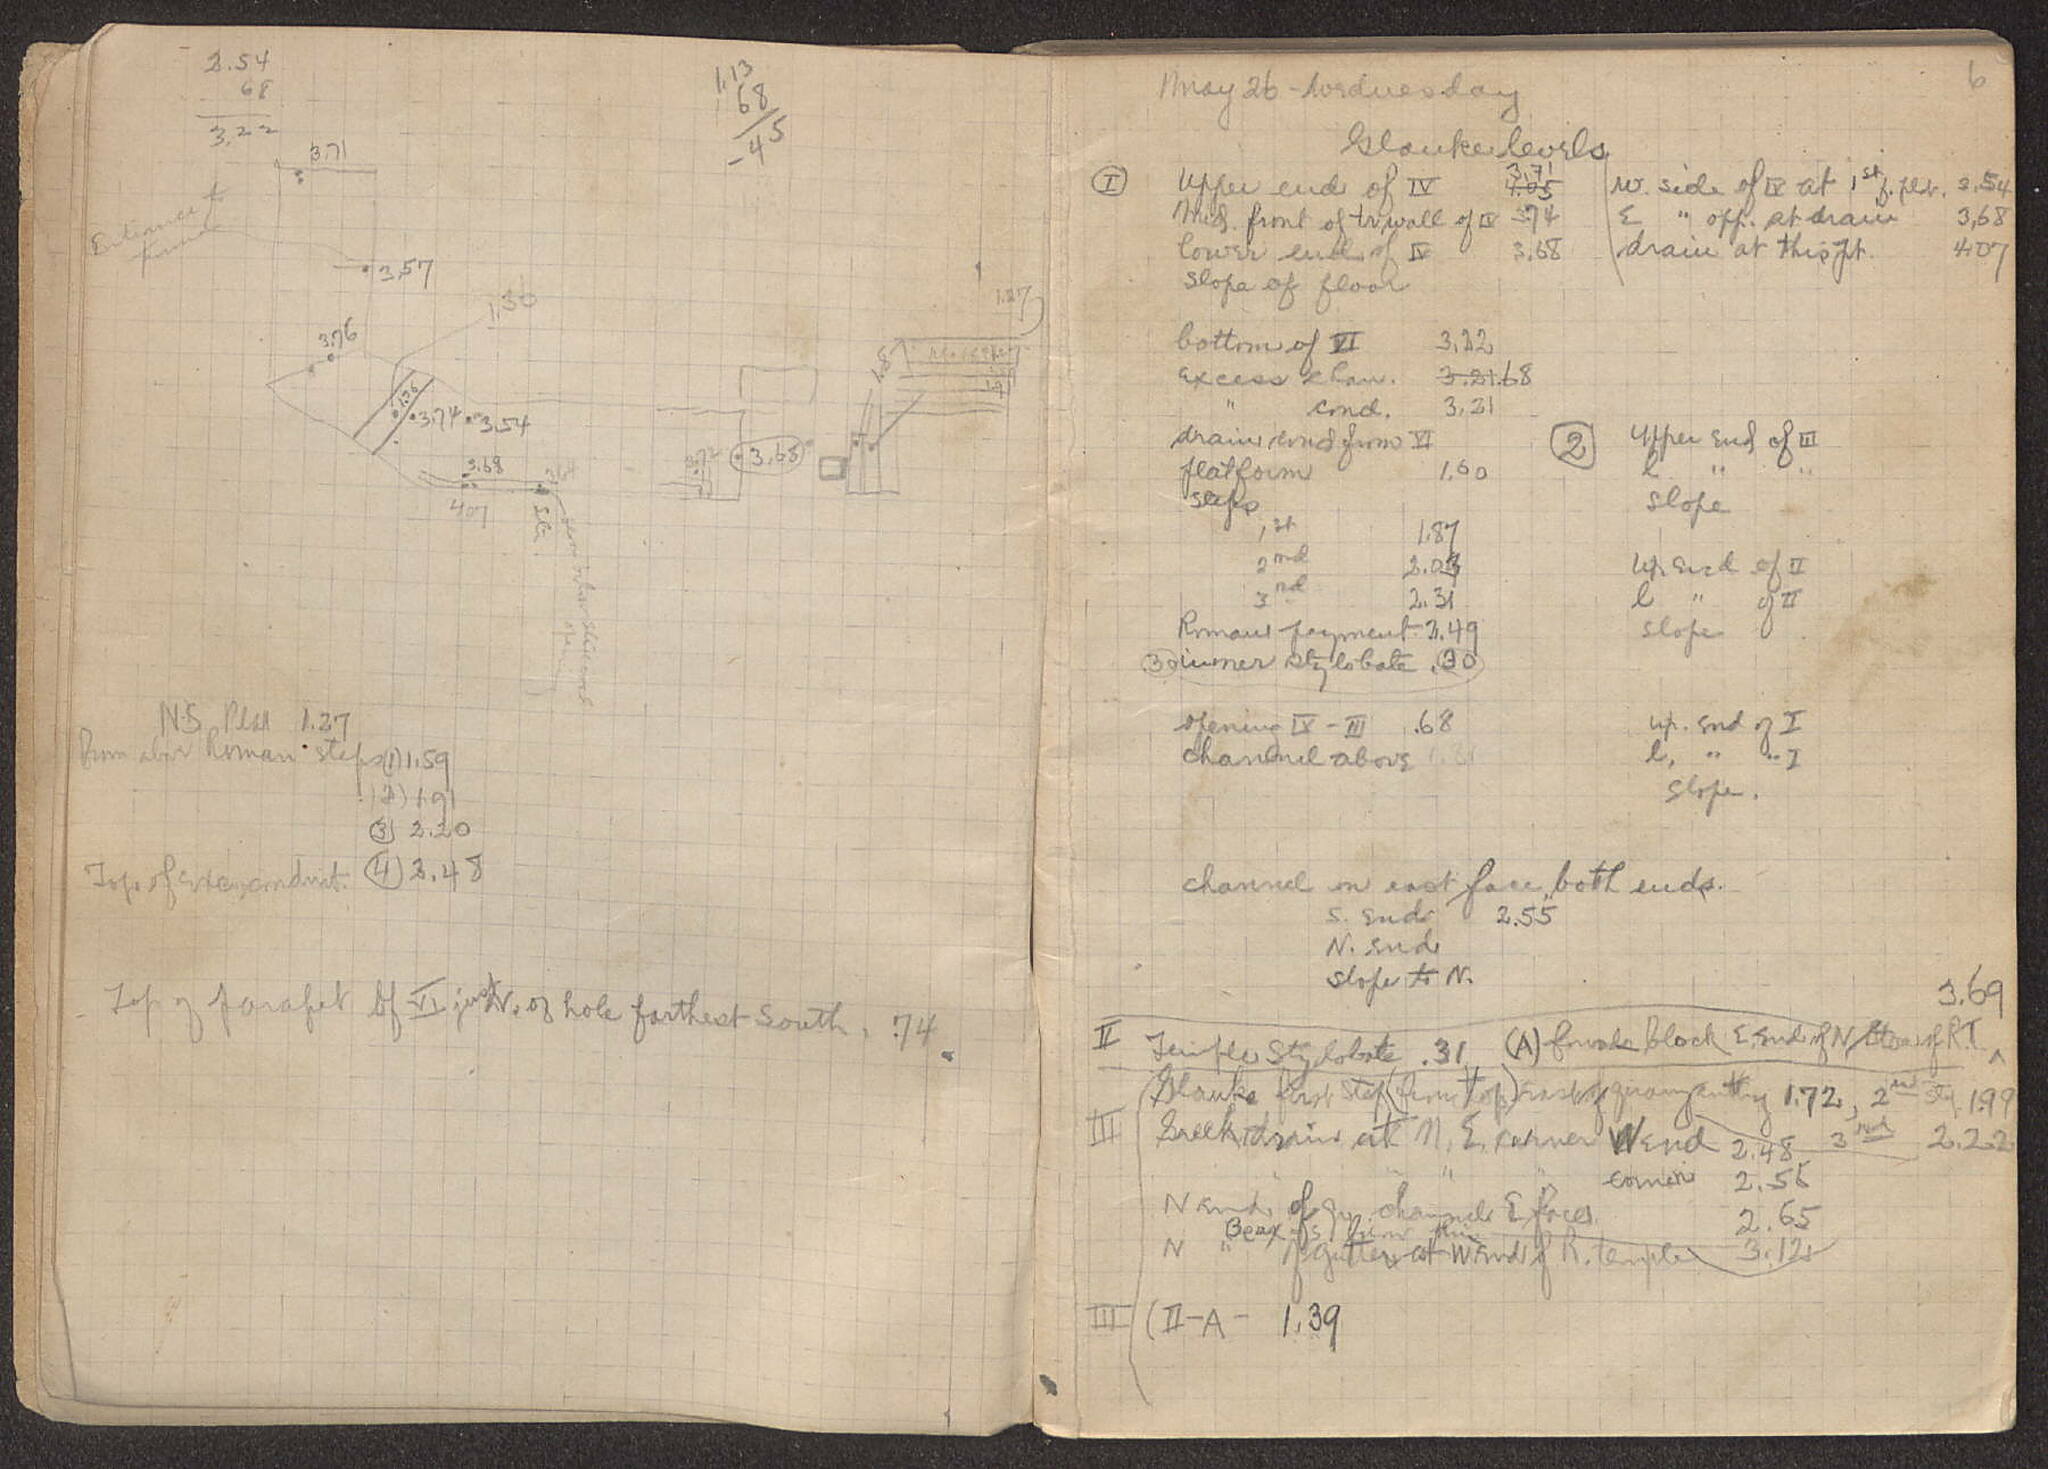 2.54
68
3.22
1.13
68
-45
3.71
Entrance to
3.57
1.30
1.27
3.76
1.8
1.36
3.74 3.54
3.68
3.72
3.68
407
St.
N-S Plan 1.27
From above Roman steps (1) 1.59
(2) 1.91
(3) 2.20
Top of excess conduit. (4) 2.48
Top of parapet of VI just N. of hole farthest South. .74
6
May 26 - Wednesday
Glauke levels
I Upper end of IV 3.71 4.05
W. side of IV at 1st 3.54
Mid. front of tr. wall of IV 3.74
E " opp. at drain 3.68
lower end of IV 3.68
drain at this pt. 4.07
Slope of floor
bottom of VI 3.22
excess chan. 3.21 .68
" cond. 3.21
drain cond from VI
platform 1.60
Steps
1st 1.87
2nd 2.03
3rd 2.31
Roman payment 2.49
.30 inner stylobate .30
opening IV - III .68
channel above 1.81
2 Upper end of III
l " "
slope
Up. end of II
l " of II
slope
up. end of I
l. " " I
slope.
channel on east face, both ends.
S. end 2.55
N. end
slope to N.
3.69
II Temple Stylobate .31 (A) block E. end of N. Stoa of R.T. ^
Glauke first step (from top) east of 1.72, 2nd St. 1.99
III Greek drain at N.E. corner W end 2.48 3rd 2.22
" " " corner 2.55
N end of channel E face 2.65
N " of gutter at W end of R. temple 3.12
III (II-A- 1.39